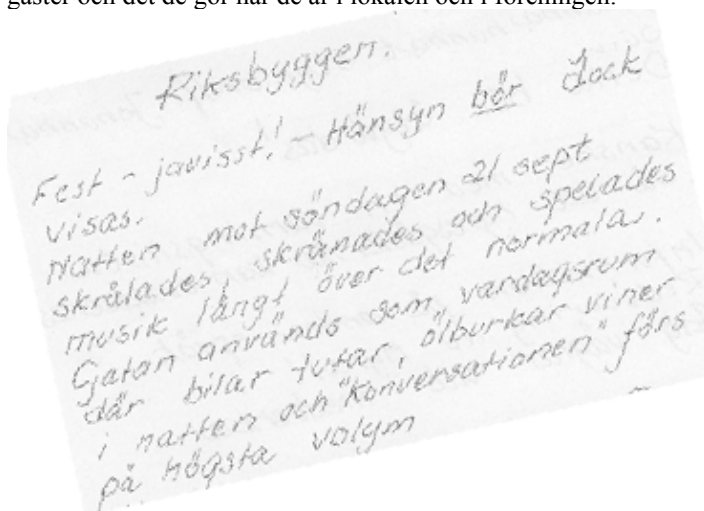 gäster och det de gör när de är i lokalen och i föreningen.
Riksbyggen.
Fest - javisst! - Hänsyn bör dock
visas.
Natten mot söndagen 21 sept
skrålades, skränades och spelades
musik långt över det normala.
Gatan används som vardagsrum
där bilar tutar, ölburkar viner
i natten och "konversationen" förs
på högsta volym